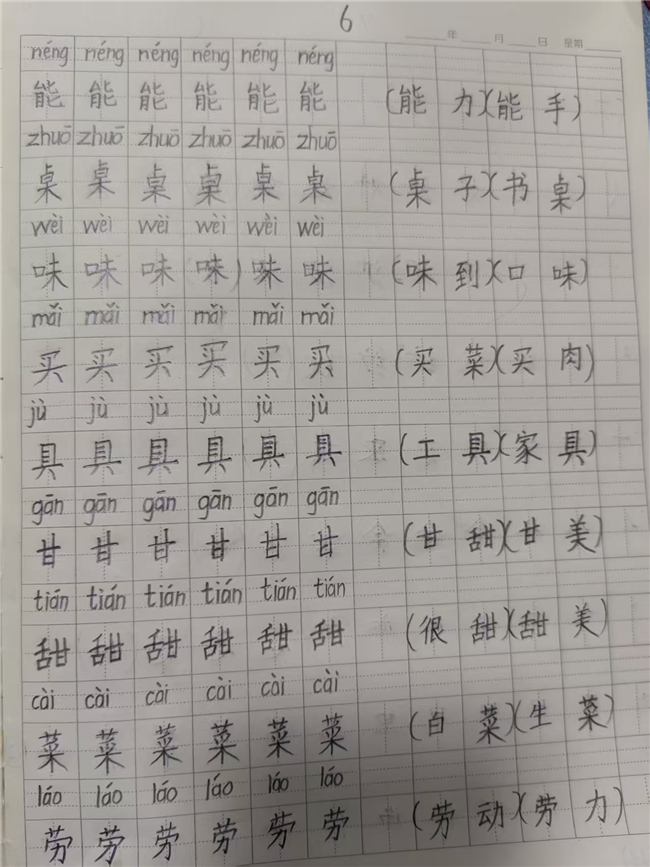 6
年 月 日 星期
néng néng néng néng néng néng
能 能 能 能 能 能 (能 力)(能 手)
zhuō zhuō zhuō zhuō zhuō zhuō
桌 桌 桌 桌 桌 桌 (桌 子)(书 桌)
wèi wèi wèi wèi wèi wèi
味 味 味 味 味 味 (味 到)(口 味)
mǎi mǎi mǎi mǎi mǎi mǎi
买 买 买 买 买 买 (买 菜)(买 肉)
jù jù jù jù jù jù
具 具 具 具 具 具 (工 具)(家 具)
gān gān gān gān gān gān
甘 甘 甘 甘 甘 甘 (甘 甜)(甘 美)
tián tián tián tián tián tián
甜 甜 甜 甜 甜 甜 (很 甜)(甜 美)
cài cài cài cài cài cài
菜 菜 菜 菜 菜 菜 (白 菜)(生 菜)
láo láo láo láo láo láo
劳 劳 劳 劳 劳 劳 (劳 动)(劳 力)